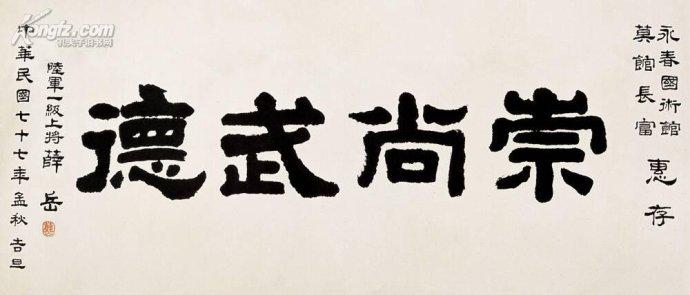 永春國術館
莫館長富 惠存
崇尚武德
陸軍一級上將薛岳
中華民國七十七年孟秋吉旦
Kongfz.com
孔夫子旧书网